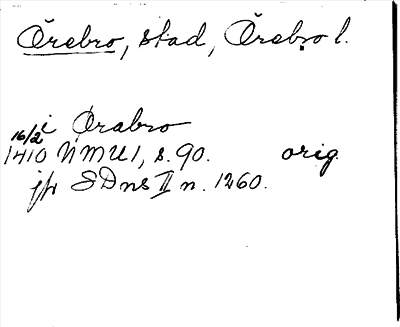 Örebro, stad, Örebro l.
i Örabro
16/2
1410 NMU 1, s. 90. orig.
jfr SDns II n. 1260.